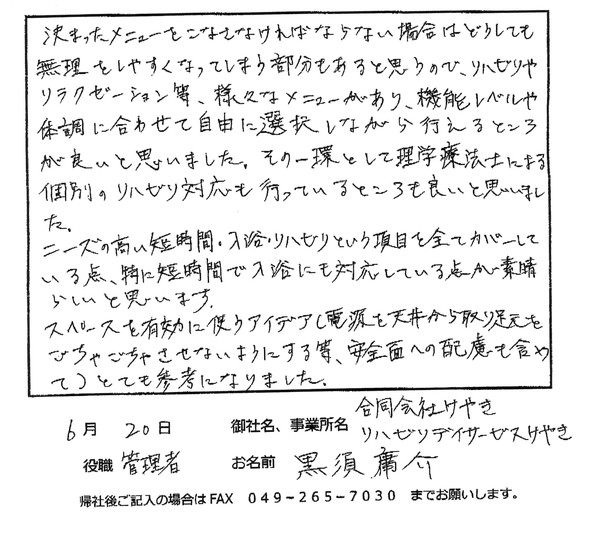 決まったメニューをこなさなければならない場合はどうしても
無理をしやすくなってしまう部分もあると思うので、リハビリや
リラクゼーション等、様々なメニューがあり、機能レベルや
体調に合わせて自由に選択しながら行えるところ
が良いと思いました。その一環として理学療法士による
個別のリハビリ対応も行っているところも良いと思いまし
た。
ニーズの高い短時間・入浴・リハビリという項目を全てカバーして
いる点、特に短時間で入浴にも対応している点が素晴
らしいと思います。
スペースを有効に使うアイデア(電源を天井から取り足元を
ごちゃごちゃさせないようにする等、安全面への配慮も含め
て)とても参考になりました。
6月 20日 御社名、事業所名 合同会社けやき
リハビリデイサービスけやき
役職 管理者 お名前 黒須庸介
帰社後ご記入の場合はFAX 049-265-7030 までお願いします。